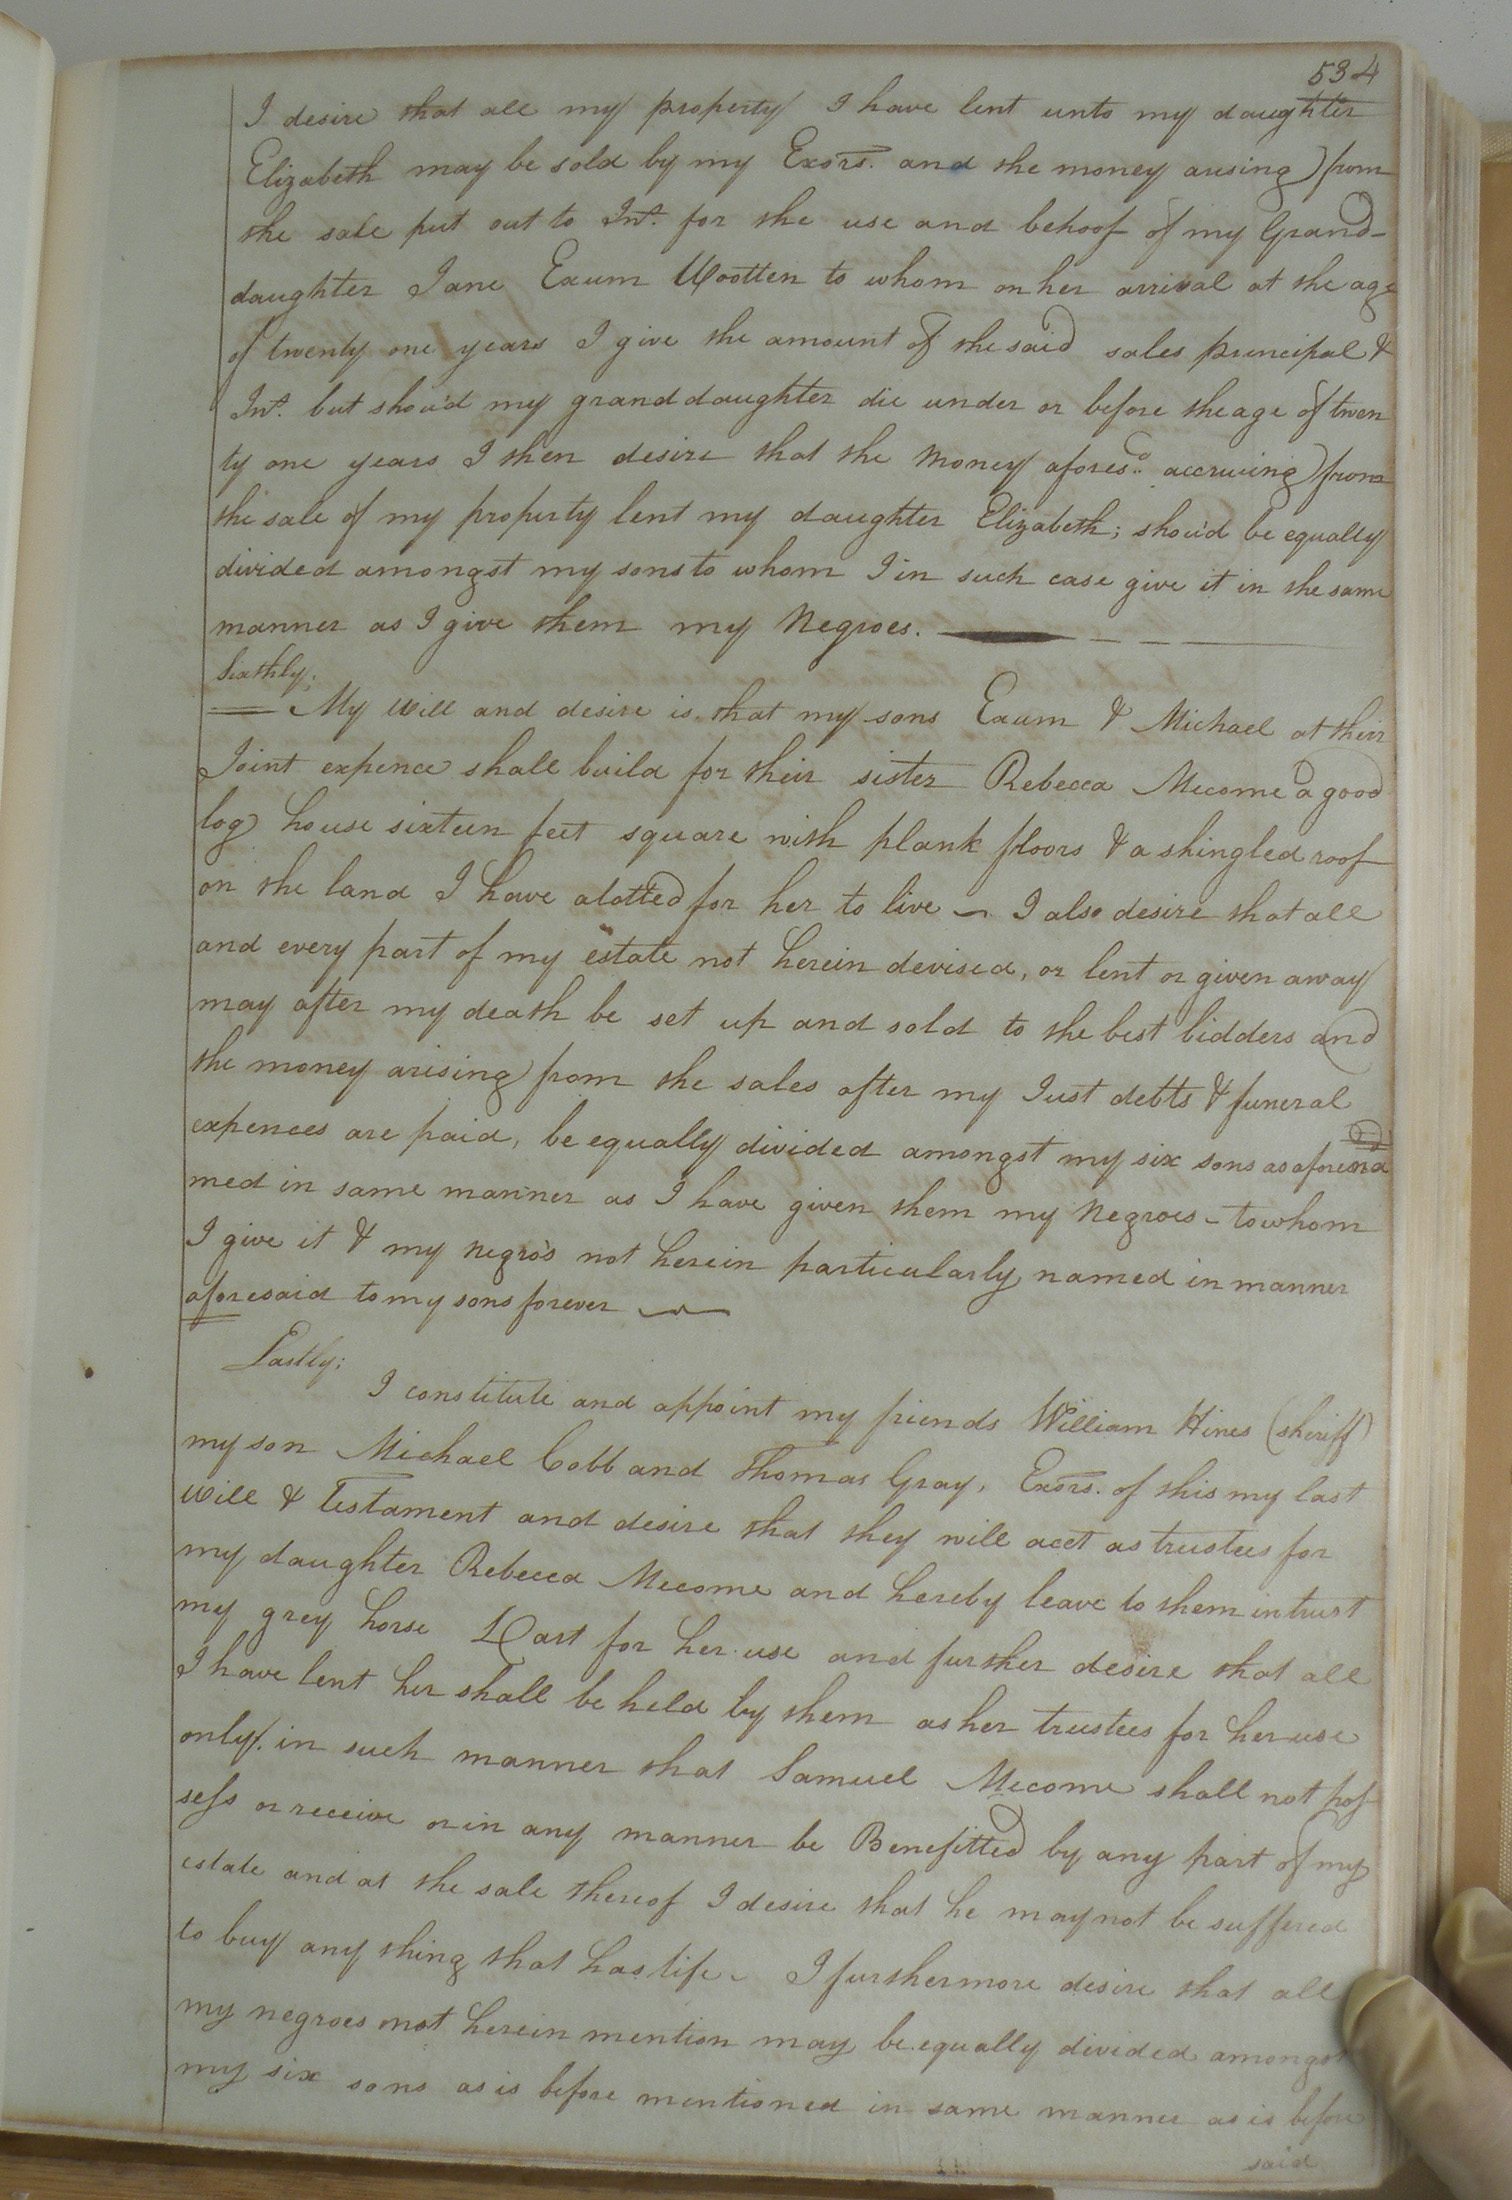 534
I desire that all my property I have lent unto my daughter
Elizabeth may be sold by my Exors. and the money arising from
the sale put out to Int. for the use and behoof of my Grand-
daughter Jane Exum Wootten to whom on her arrival at the age
of twenty one years I give the amount of the said sales principal &
Int. but shou'd my granddaughter die under or before the age of twen
ty one years I then desire that the money aforesd. accruing from
the sale of my property lent my daughter Elizabeth; shou'd be equally
divided amongst my sons to whom I in such case give it in the same
manner as I give them my Negroes.
Sixthly;
My will and desire is that my sons Exum & Michael at their
Joint expence shall build for their sister Rebecca Mecome a good
log house sixteen feet square with plank floors & a shingled roof
on the land I have alotted for her to live ~ I also desire that all
and every part of my estate not herein devised, or lent or given away
may after my death be set up and sold to the best bidders and
the money arising from the sales after my Just debts & funeral
expences are paid, be equally divided amongst my six sons as afore
med in same manner as I have given them my Negroes - to whom
I give it & my negro's not herein particularly named in manner
aforesaid to my sons forever
Lastly;
I constitute and appoint my friends William Hines (sheriff)
my son Michael Cobb and Thomas Gray, Exors. of this my last
will & Testament and desire that they will acct as trustees for
my daughter Rebecca Mecome and hereby leave to them in trust
my grey horse Dart for her use and further desire that all
I have lent her shall be held by them as her trustees for her use
only. in such manner that Samuel Mecome shall not pos
sess or receive or in any manner be Benefitted by any part of my
estate and at the sale thereof I desire that he may not be suffered
to buy any thing that has life - I furthermore desire that all
my negroes not herein mention may be equally divided amongst
my six sons as is before mentioned in same manner as is before
said